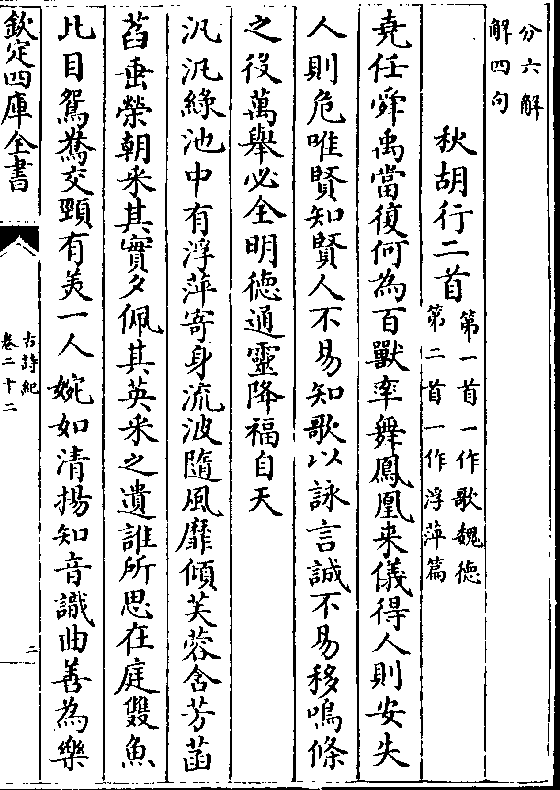 分六解
解四句
秋胡行二首第一首一作歌魏德
第二首一作浮萍篇
堯任舜禹當復何為百獸率舞鳳凰来儀得人則安失
人則危唯賢知賢人不易知歌以詠言誠不易移鳴條
之役萬舉必全明德通靈降福自天
汎汎綠池中有浮萍寄身流波隨風靡傾芙蓉含芳菡
萏垂榮朝采其實夕佩其英采之遺誰所思在庭雙魚
比目鴛鴦交頸有美一人婉如清揚知音識曲善為樂
欽定四庫全書
古詩紀
卷二十二
二